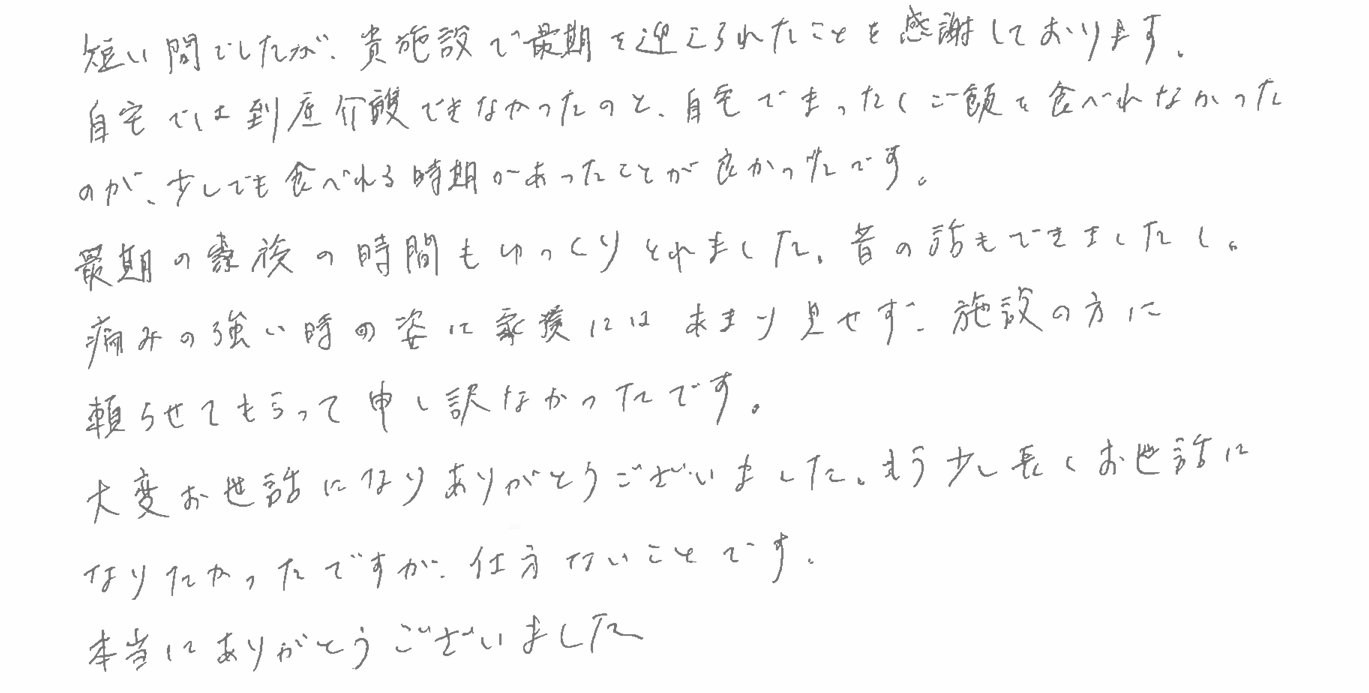 短い間でしたが、貴施設で最期を迎えられたことを感謝しております。
自宅では到底介護できなかったのと、自宅でまったくご飯を食べれなかった
のが、少しでも食べれる時期があったことが良かったです。
最期の家族の時間もゆっくりとれました。昔の話もできましたし。
痛みの強い時の姿は家族にはあまり見せず、施設の方に
頼らせてもらって申し訳なかったです。
大変お世話になりありがとうございました。もう少し長くお世話に
なりたかったですが、仕方ないことです。
本当にありがとうございました